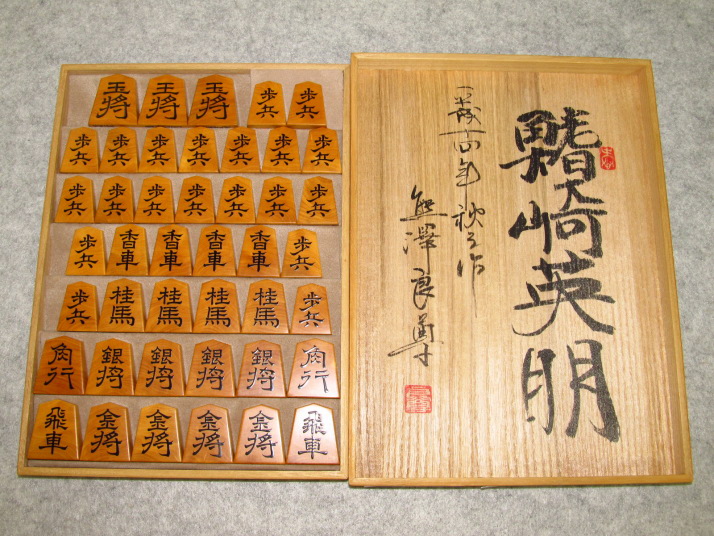 玉将 王将 玉将 歩兵 歩兵
歩兵 歩兵 歩兵 歩兵 歩兵 歩兵 歩兵
歩兵 歩兵 歩兵 歩兵 歩兵 歩兵 歩兵
歩兵 香車 香車 香車 香車 歩兵
歩兵 桂馬 桂馬 桂馬 桂馬 歩兵
角行 銀将 銀将 銀将 銀将 角行
飛車 金将 金将 金将 金将 飛車
鰭崎英朋
平成十四年秋之作
熊澤良尊